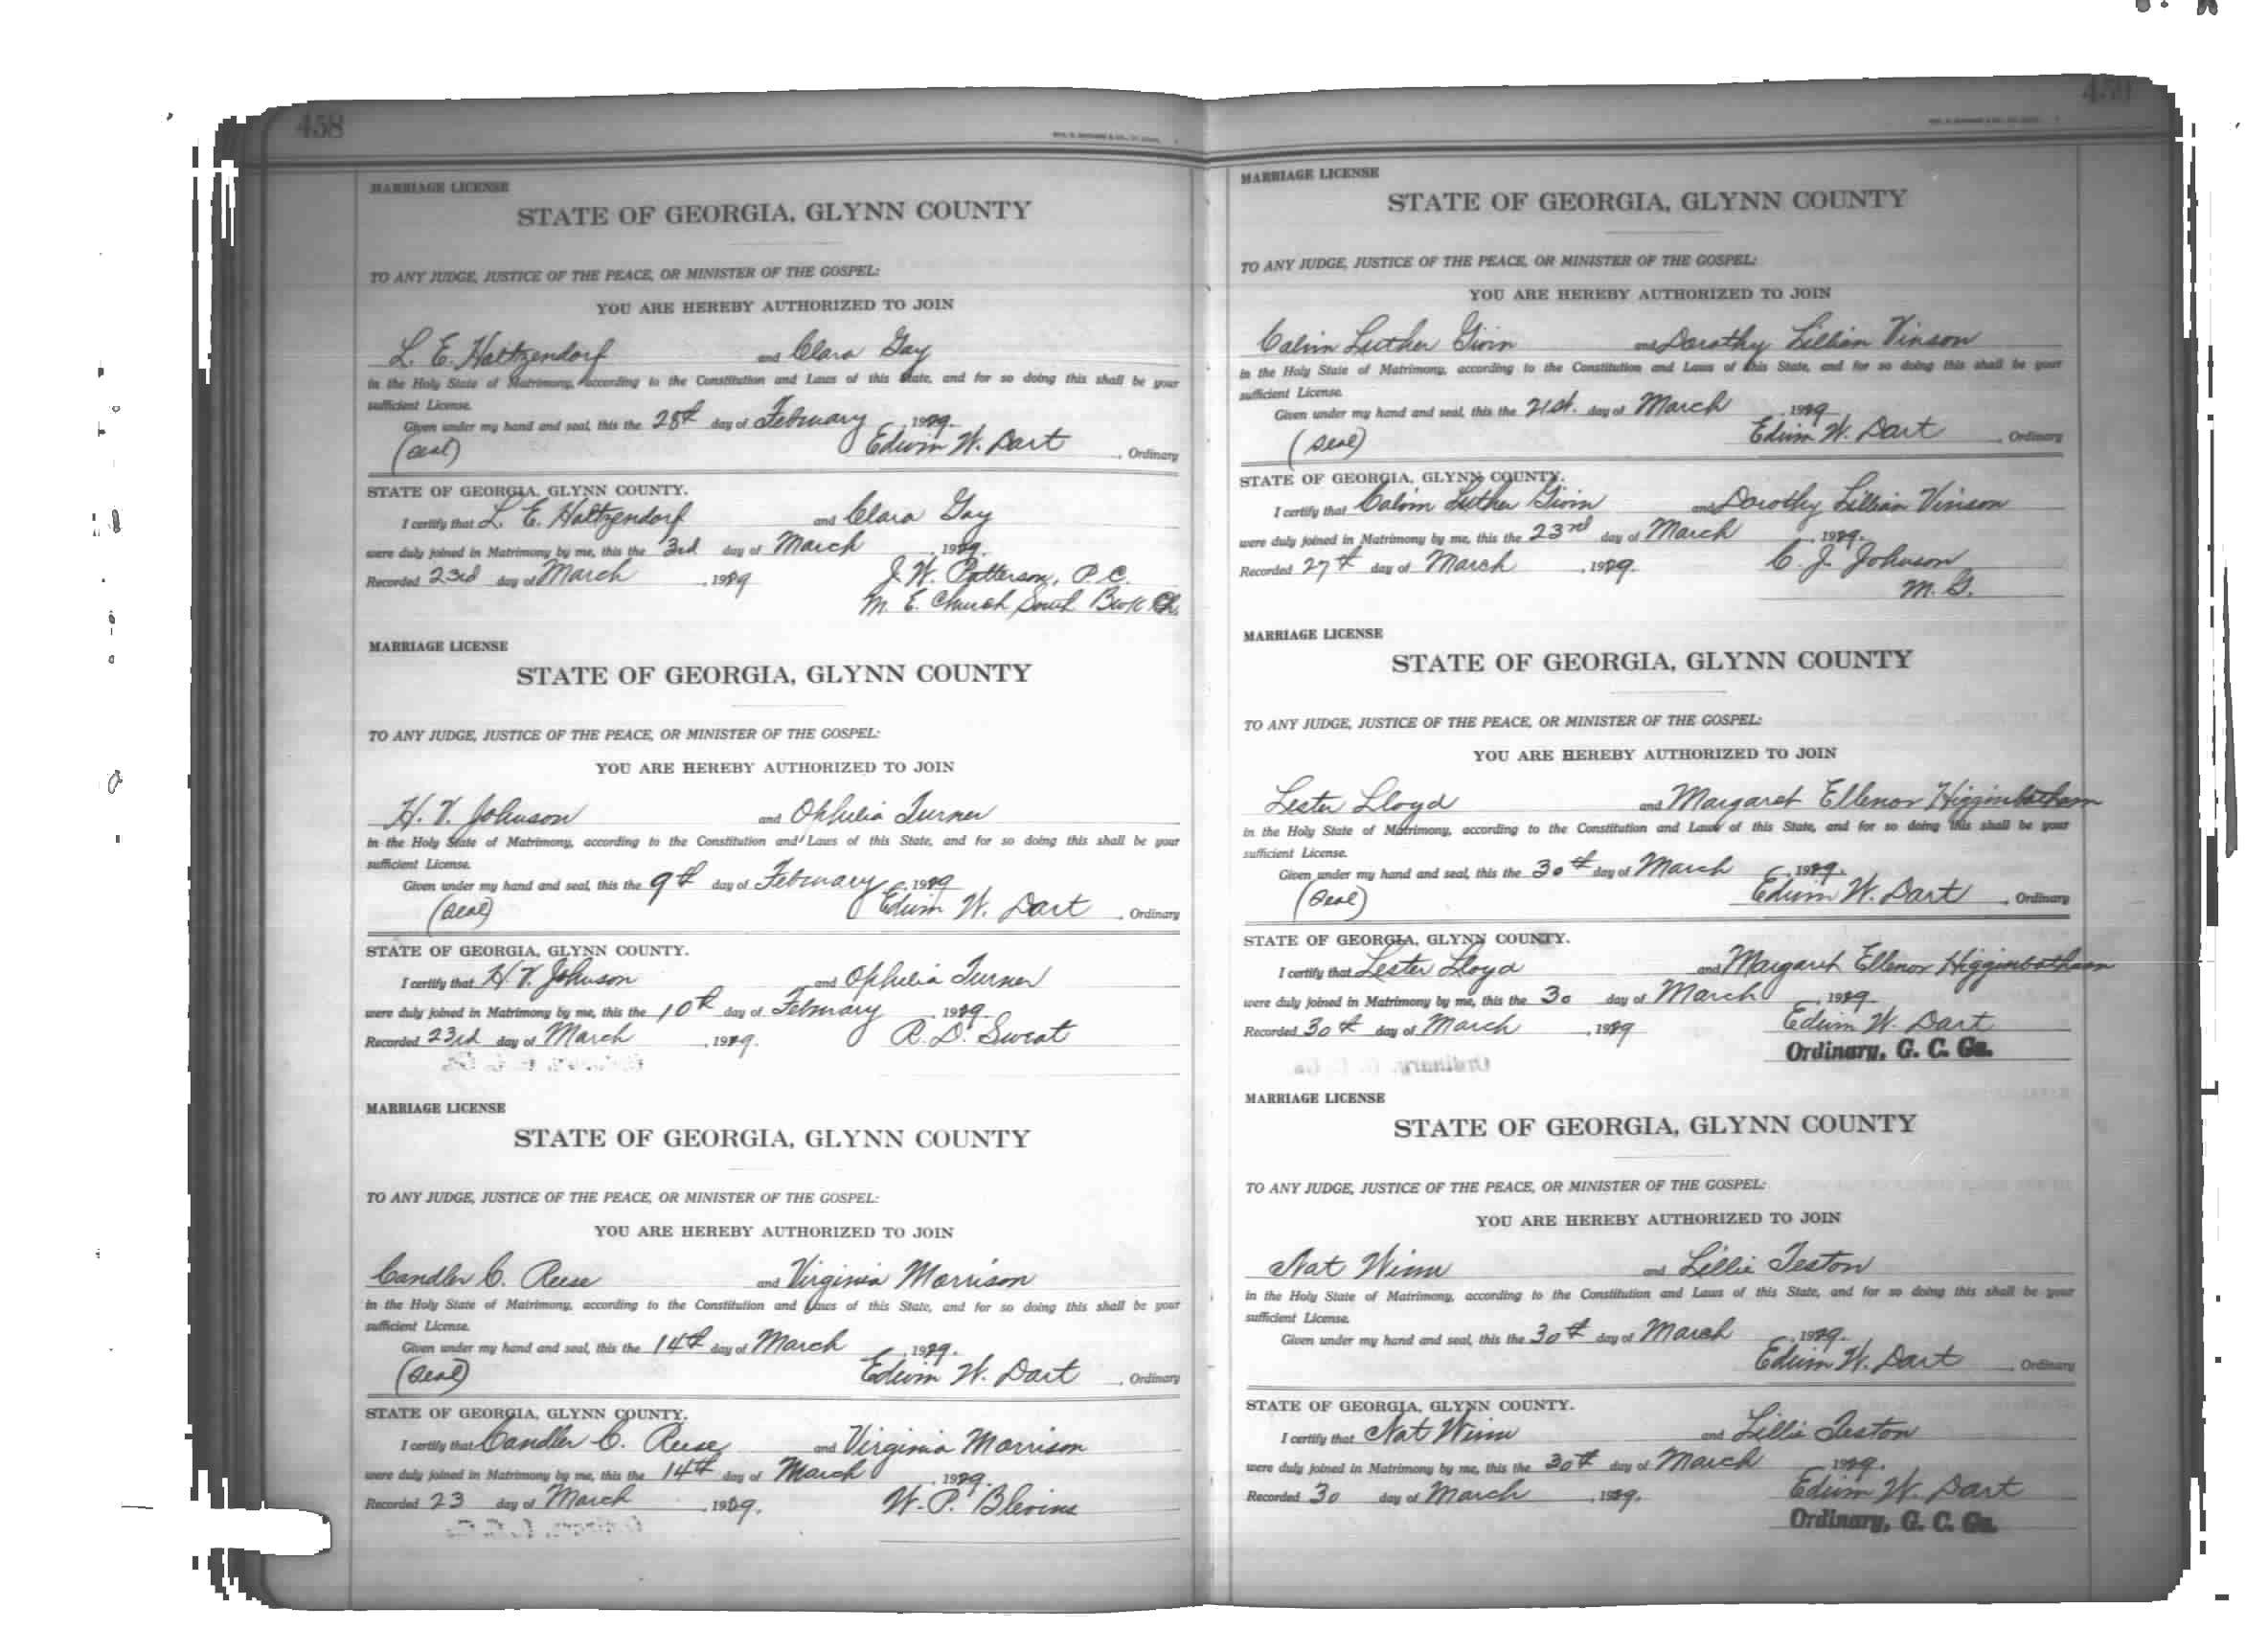 458
MARRIAGE LICENSE
STATE OF GEORGIA, GLYNN COUNTY
TO ANY JUDGE, JUSTICE OF THE PEACE, OR MINISTER OF THE GOSPEL:
YOU ARE HEREBY AUTHORIZED TO JOIN
L. E. Haltzendorf and Clara Gay
in the Holy State of Matrimony, according to the Constitution and Laws of this State, and for so doing this shall be your
sufficient License.
Given under my hand and seal, this the 28th day of February, 1929.
(Seal) Edwin W. Dart, Ordinary
STATE OF GEORGIA, GLYNN COUNTY.
I certify that L. E. Haltzendorf and Clara Gay
were duly joined in Matrimony by me, this the 3rd day of March, 1929.
Recorded 23rd day of March, 1929 J. W. Patterson, P.C.
M. E. Church South
MARRIAGE LICENSE
STATE OF GEORGIA, GLYNN COUNTY
TO ANY JUDGE, JUSTICE OF THE PEACE, OR MINISTER OF THE GOSPEL:
YOU ARE HEREBY AUTHORIZED TO JOIN
H. V. Johnson and Ophelia Turner
in the Holy State of Matrimony, according to the Constitution and Laws of this State, and for so doing this shall be your
sufficient License.
Given under my hand and seal, this the 9th day of February, 1929
(Seal) Edwin W. Dart, Ordinary
STATE OF GEORGIA, GLYNN COUNTY.
I certify that H V. Johnson and Ophelia Turner
were duly joined in Matrimony by me, this the 10th day of February, 1929.
Recorded 23rd day of March, 1929. R. D. Sweat
MARRIAGE LICENSE
STATE OF GEORGIA, GLYNN COUNTY
TO ANY JUDGE, JUSTICE OF THE PEACE, OR MINISTER OF THE GOSPEL:
YOU ARE HEREBY AUTHORIZED TO JOIN
Candler C. Reese and Virginia Morrison
in the Holy State of Matrimony, according to the Constitution and Laws of this State, and for so doing this shall be your
sufficient License.
Given under my hand and seal, this the 14th day of March, 1929.
(Seal) Edwin W. Dart, Ordinary
STATE OF GEORGIA, GLYNN COUNTY.
I certify that Candler C. Reese and Virginia Morrison
were duly joined in Matrimony by me, this the 14th day of March, 1929.
Recorded 23 day of March, 1929. W. P. Blevins
459
MARRIAGE LICENSE
STATE OF GEORGIA, GLYNN COUNTY
TO ANY JUDGE, JUSTICE OF THE PEACE, OR MINISTER OF THE GOSPEL:
YOU ARE HEREBY AUTHORIZED TO JOIN
Calvin Luther Givin and Dorothy Lillian Vinson
in the Holy State of Matrimony, according to the Constitution and Laws of this State, and for so doing this shall be your
sufficient License.
Given under my hand and seal, this the 21st. day of March, 1929
(Seal) Edwin W. Dart, Ordinary
STATE OF GEORGIA, GLYNN COUNTY.
I certify that Calvin Luther Givin and Dorothy Lillian Vinson
were duly joined in Matrimony by me, this the 23rd day of March, 1929.
Recorded 27th day of March, 1929. C. J. Johnson
M. G.
MARRIAGE LICENSE
STATE OF GEORGIA, GLYNN COUNTY
TO ANY JUDGE, JUSTICE OF THE PEACE, OR MINISTER OF THE GOSPEL:
YOU ARE HEREBY AUTHORIZED TO JOIN
Lester Lloyd and Margaret Ellenor Higginbotham
in the Holy State of Matrimony, according to the Constitution and Laws of this State, and for so doing this shall be your
sufficient License.
Given under my hand and seal, this the 30th day of March, 1929.
(Seal) Edwin W. Dart, Ordinary
STATE OF GEORGIA, GLYNN COUNTY.
I certify that Lester Lloyd and Margaret Ellenor Higginbotham
were duly joined in Matrimony by me, this the 30 day of March, 1929.
Recorded 30th day of March, 1929 Edwin W. Dart
Ordinary, G. C. Ga.
MARRIAGE LICENSE
STATE OF GEORGIA, GLYNN COUNTY
TO ANY JUDGE, JUSTICE OF THE PEACE, OR MINISTER OF THE GOSPEL:
YOU ARE HEREBY AUTHORIZED TO JOIN
Nat Winn and Lillie Teston
in the Holy State of Matrimony, according to the Constitution and Laws of this State, and for so doing this shall be your
sufficient License.
Given under my hand and seal, this the 30th day of March, 1929.
Edwin W. Dart, Ordinary
STATE OF GEORGIA, GLYNN COUNTY.
I certify that Nat Winn and Lillie Teston
were duly joined in Matrimony by me, this the 30th day of March, 1929.
Recorded 30 day of March, 1929. Edwin W. Dart
Ordinary, G. C. Ga.